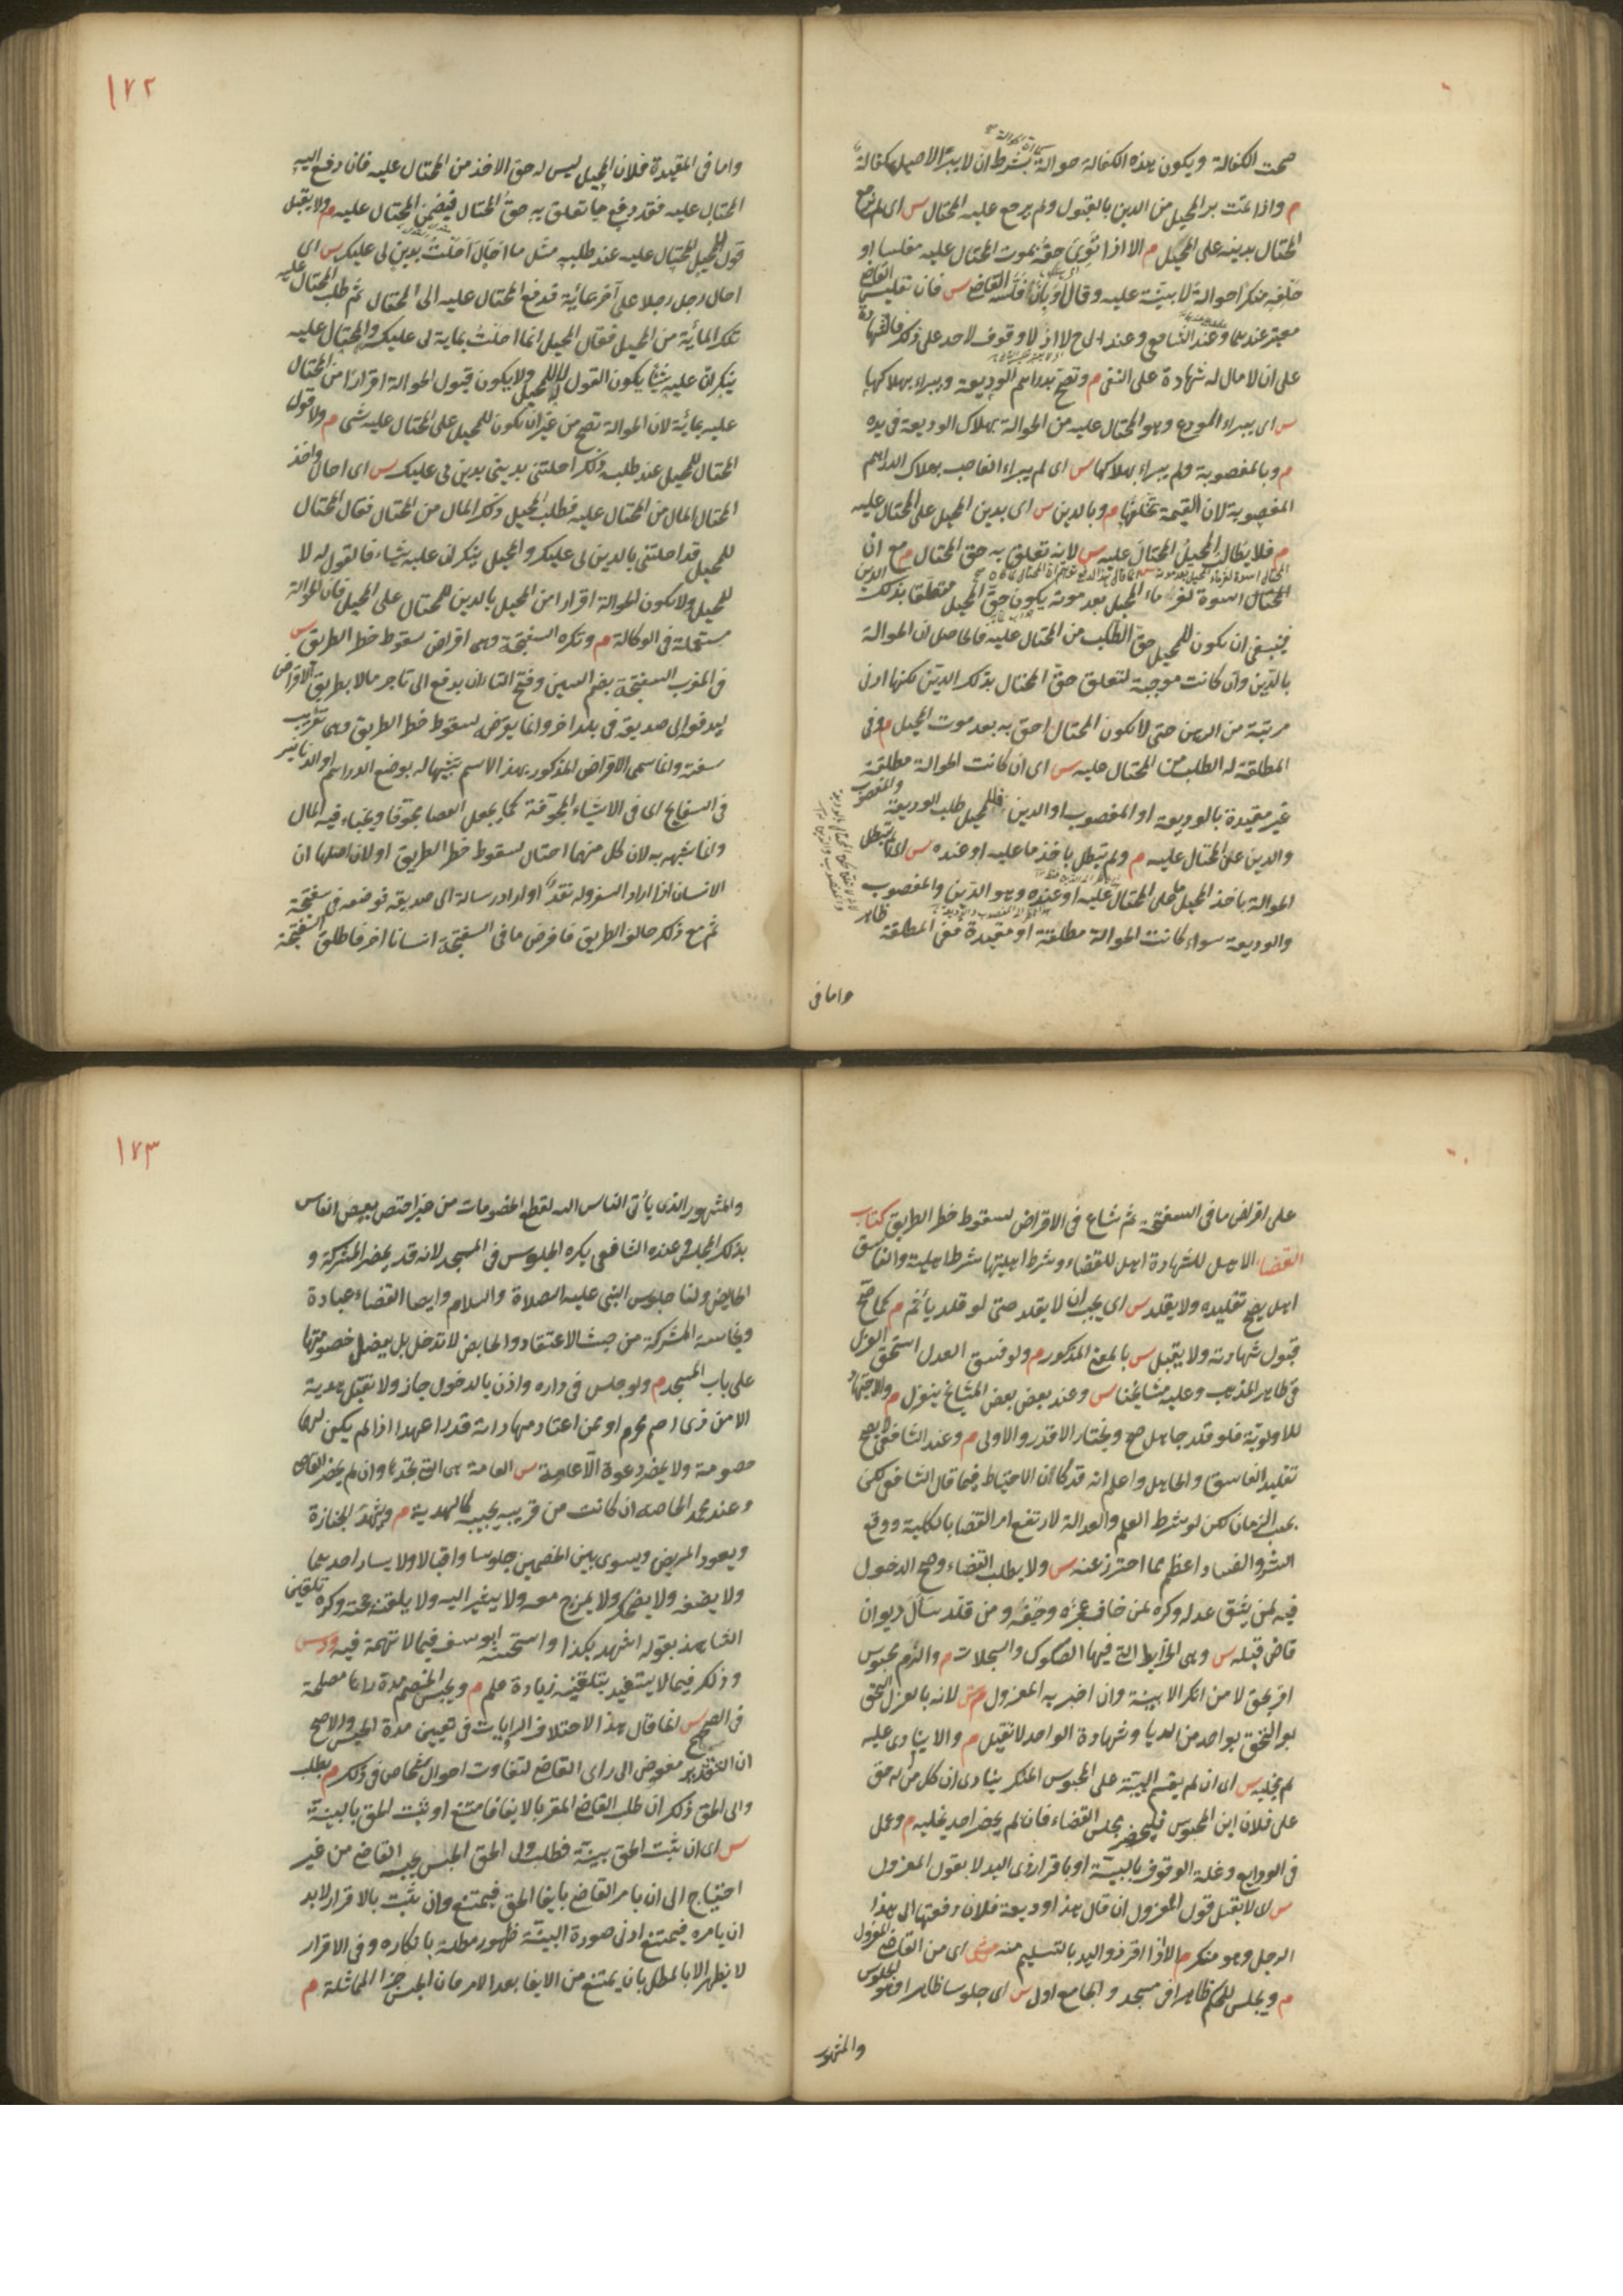 صحت الكفالة ويكون هذه الكفالة حوالة بشرط ان لا يبرأ الاصيل كفالة
م واذا تمت برئ المحيل من الدين بالقبول ولم يرجع عليه المحتال س اى لم يرجع
المحتال بدينه على المحيل م الا اذا توى حقه بموت المحتال عليه مفلسا او
حلفه منكرا حوالة لا بينة عليه وقالا او بان فلسه القاضى س فان تفليس القاضى
معتبر عندهما وعند الشافعى وعند ابى ح لا اذ لا وقوف لاحد على ذلك فالشهادة
على ان لا مال له شهادة على النفى م وتصح بدراهم الوديعة ويبراء بهلاكها
س اى يبراء المودع وهو المحتال عليه من الحوالة بهلاك الوديعة فى يده
م وبالمغصوبة ولم يبراء بهلاكها س اى لم يبراء الغاصب بهلاك الدراهم
المغصوبة لان القيمة تخلفها م وبالدين س اى بدين المحيل على المحتال عليه
م فلا يطالب المحيل المحتال عليه س لانه تعلق به حق المحتال م مع ان
المحتال اسوة لغرماء المحيل بعد موته يكون حق المحيل متعلقا بذلك الدين
فينبغى ان يكون للمحيل حق الطلب من المحتال عليه فالحاصل ان الحوالة
بالدين وان كانت موجبة لتعلق حق المحتال بذلك الدين لكنها ادنى
مرتبة من الرهن حتى لا يكون المحتال احق به بعد موت المحيل م وفى
المطلقة له الطلب من المحتال عليه س اى ان كانت الحوالة مطلقة
غير مقيدة بالوديعة او المغصوب او الدين فللمحيل طلب الوديعة والمغصوب
والدين على المحتال عليه م ولم تبطل باخذ ما عليه او عنده س اى لا تبطل
الحوالة باخذ المحيل ما على المحتال عليه او عنده وهو الدين والمغصوب
والوديعة سواء كانت الحوالة مطلقة او مقيدة ففى المطلقة ظاهر
واما فى
١٧٢
واما فى المقيدة فلان المحيل ليس له حق الاخذ من المحتال عليه فان دفع اليه
المحتال عليه فقد دفع ما تعلق به حق المحتال فيضمن المحتال عليه م ولا يقبل
قول المحيل للمحتال عليه عند طلبه مثل ما احال احلت بدين لى عليك س اى
احال رجل رجلا على آخر بمائة فدفع المحتال عليه الى المحتال ثم طلب المحتال عليه
تلك المائة من المحيل فقال المحيل انما احلت بماية لى عليك والمحتال عليه
ينكر ان عليه شيئا يكون القول له لا للمحيل ولا يكون قبول الحوالة اقرارا من المحتال
عليه بمائة لان الحوالة تصح من غير ان يكون للمحيل على المحتال عليه شئ م ولا قول
المحتال للمحيل عند طلبه ذلك احلتنى بدينى بدين لى عليك س اى احال واخذ
المحتال المال من المحتال عليه فطلب المحيل ذلك المال من المحتال فقال المحتال
للمحيل قد احلتنى بالدين لى عليك والمحيل ينكر ان عليه شياء فالقول له لا
للمحيل ولا يكون الحوالة اقرارا من المحيل بالدين للمحتال على المحيل فان الحوالة
مستعملة فى الوكالة م وتكره السفتجة وهى اقراض لسقوط خطر الطريق س
فى المغرب السفتجة بضم السين وفتح التاء ان يدفع الى تاجر مالا بطريق الاقراض
ليدفعه الى صديقه فى بلد اخر وانما يقرضه لسقوط خطر الطريق وهى تعريب
سفته وانما سمى الاقراض المذكور بهذا الاسم تشبيها له بوضع الدراهم او الدنانير
فى السفاتج اى فى الاشياء المجوفة كما يجعل العصا مجوفا ويخباء فيه المال
وانما شبهه به لان كل منهما احتال لسقوط خطر الطريق او لان اصلها ان
الانسان اذا اراد السفر وله نقد او اراد ارسالة اى صديقه فوضعه فى سفتجة
ثم مع ذلك خاف الطريق فاقرض ما فى السفتجة انسانا اخر فاطلق السفتجة
على اقراض ما فى السفتجة ثم شاع فى الاقراض لسقوط خطر الطريق كتاب
القضاء الاهل للشهادة اهل للقضاء وشرط اهليتها شرط اهليته والفاسق
اهل يصح تقليده ولا يقلد س اى يجب ان لا يقلد حتى لو قلد يأثم م كما صح
قبول شهادته ولا يقبل س بالمعنى المذكور م ولو فسق العدل استحق العزل
فى ظاهر المذهب وعليه مشايخنا س وعند بعض بعض المشايخ ينعزل م والاجتهاد
للاولوية فلو قلد جاهل صح ويختار الاقدر والاولى م وعند الشافعى لا يصح
تقليد الفاسق والجاهل واعلم انه قد كان الاحتياط فيما قال الشافعى لكن
بحسب الزمان لكن لو شرط العلم والعدالة لارتفع امر القضا بالكلية ووقع
الشر والفساد اعظم مما احترز عنه س ولا يطلب القضاء وصح الدخول
فيه لمن يثق عدله وكره لمن خاف عجزه وحيفه ومن قلد سأل ديوان
قاض قبله س وهى الخرايط التى فيها الصكوك والسجلات م والزم محبوس
اقر بحق لا من انكر الا ببينة وان اخبر به المعزول س لانه بالعزل التحق
بواحد من الرعايا وشهادة الواحد لا تقبل م والا ينادى عليه
ثم يخليه س اى ان لم يقم البينة على المحبوس المنكر ينادى ان كل من له حق
على فلان ابن المحبوس فليحضر مجلس القضاء فان لم يحضر احد يخليه م وعمل
فى الودايع وغلة الوقوف بالبينة او باقرار ذى اليد لا بقول المعزول
س لا يقبل قول المعزول ان قال هذا وديعة فلان دفعتها الى هذا
الرجل وهو منكر م الا اذا اقر ذو اليد بالتسليم منه س اى من القاضى المعزول
م ويجلس للحكم ظاهرا فى مسجد والجامع اولى س اى جلوسا ظاهرا وهو الجلوس
والمشهور
١٧٣
والمشهور الذى يأتى الناس اليه لقطع الخصومات من غير اختص ببعض الناس
بذلك المجلس وعند الشافعى يكره الجلوس فى المسجد لانه قد يحضر المشركة و
الحايض ولنا جلوس النبى عليه الصلاة والسلام وايضا القضاء عبادة
ونجاسة المشركة من حيث الاعتقاد والحايض لا تدخل بل يفصل خصومتها
على باب المسجد م ولو جلس فى داره واذن بالدخول جاز ولا تقبل هدية
الا من ذى رحم محرم او ممن اعتاد مهاداته قدرا عهد اذا لم يكن لهما
خصومة ولا يحضر دعوة الا عامة س العامة هى التى يتخذها وان لم يحضر القاضى
وعند محمد الخاصة ان كانت من قريبه يجيبه كالهدية م ويشهد الجنازة
ويعود المريض ويسوى بين الخصمين جلوسا واقبالا ولا يسار احدهما
ولا يضيفه ولا يضحك ولا يمزح معه ولا يشير اليه ولا يلقنه حجته وكره تلقين
الشاهد بقوله اشهد بكذا واستحسنه ابو يوسف فيما لا تهمة فيه س
وذلك فيما لا يستفيد بتلقينه زيادة علم م ويحبس الخصم مدة رآها مصلحة
فى الصحيح س انما قال هذا لاختلاف الروايات فى تعيين مدة الحبس والاصح
ان التقدير مفوض الى راى القاضى لتفاوت احوال اشخاص فى ذلك م بطلب
ولى الحق ذلك ان طلب القاضى المقر بالايفا فامتنع او ثبت الحق بالبينة
س اى ان ثبت الحق ببينة فطلب ولى الحق الحبس يحبسه القاضى من غير
احتياج الى ان يامر القاضى بايفا الحق فيمتنع وان ثبت بالاقرار لابد
ان يامره فيمتنع اذ فى صورة البينة ظهور مطله بانكاره وفى الاقرار
لا يظهر الا بالمطل بان يمتنع من الايفا بعد الامر فان الحبس جزاء المماطلة م